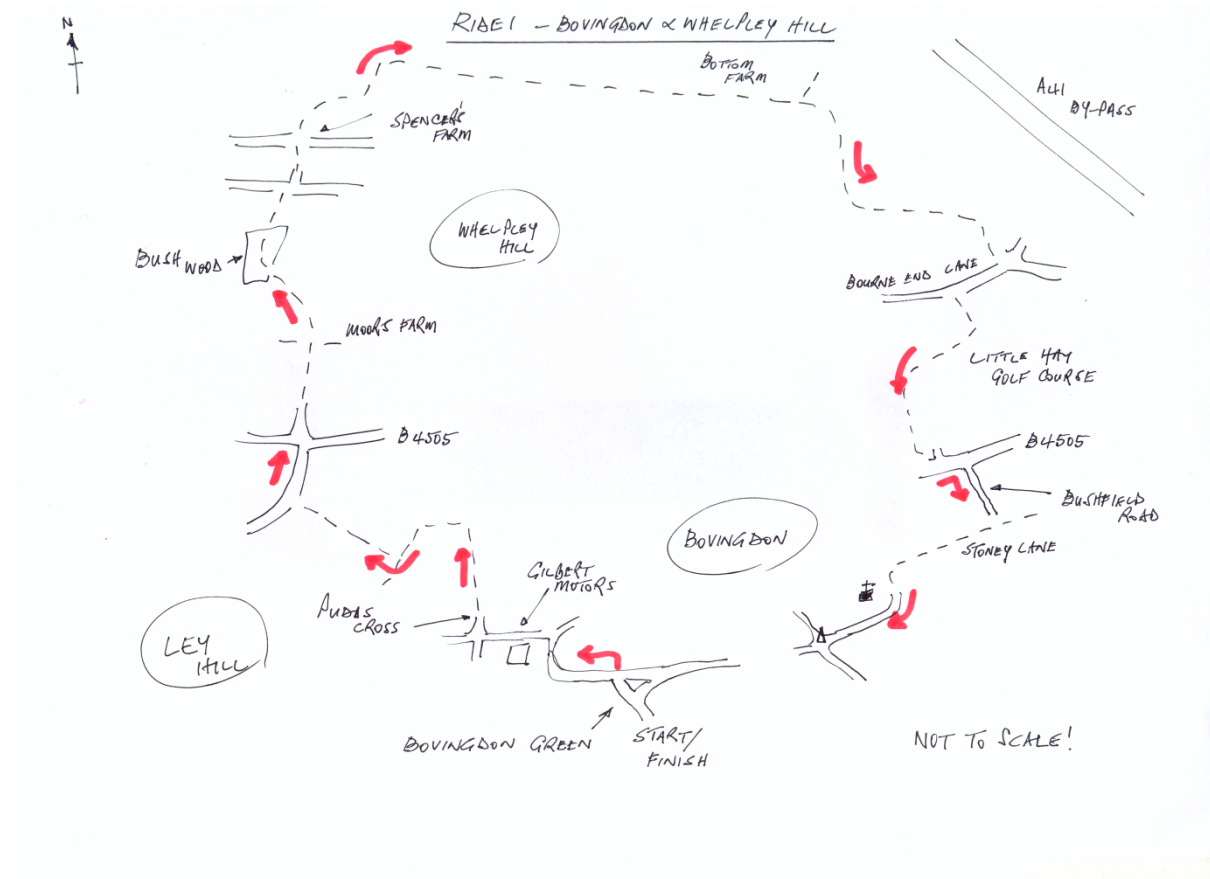 N
RIDE 1 - BOVINGDON & WHELPLEY HILL
BOTTOM
FARM
A41
BY-PASS
SPENCER'S
FARM
WHELPLEY
HILL
BUSH WOOD
BOURNE END LANE
MOORS FARM
LITTLE HAY
GOLF COURSE
B4505
B4505
BUSHFIELD
ROAD
BOVINGDON
STONEY LANE
GILBERT
MOTORS
PUDDS
CROSS
LEY
HILL
BOVINGDON GREEN
START/
FINISH
NOT TO SCALE!